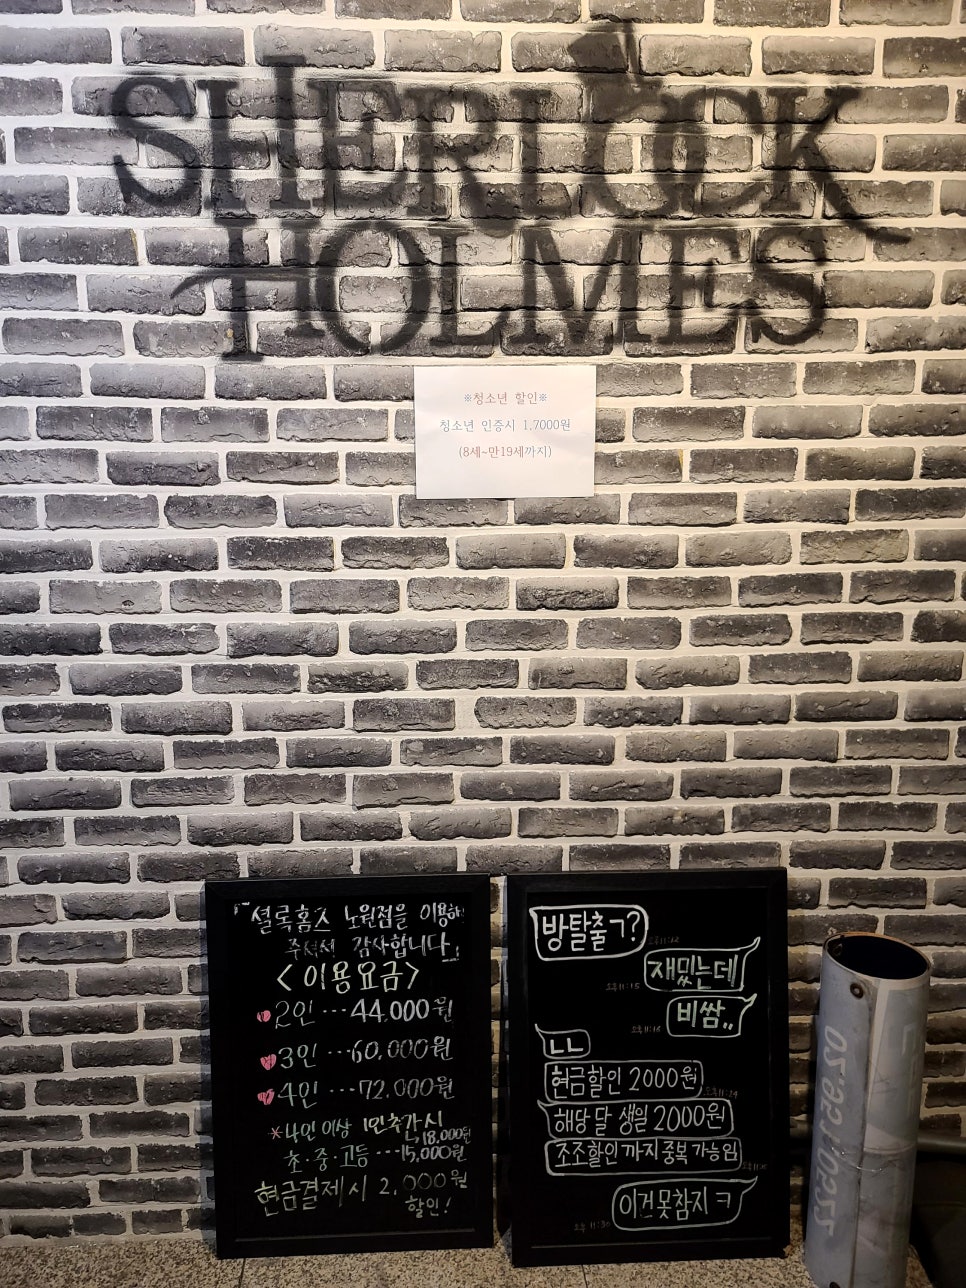 SHERLOCK
HOLMES
※청소년 할인※
청소년 인증시 1,7000원
(8세~만19세까지)
「셜록홈즈 노원점을 이용해
주셔서 감사합니다」
<이용요금>
2인 ···44,000원
3인 ···60,000원
4인 ···72,000원
*4인 이상 1인추가시
18,000원
초·중·고등 ···15,000원
현금결제시 2,000원
할인!
방탈출ㄱ?
재밌는데
오후 11:15
비쌈..
오후 11:18
ㄴㄴ
현금할인 2000원
해당 달 생일 2000원
조조할인 까지 중복 가능임
이건못참지 ㅋ
오후 11:30